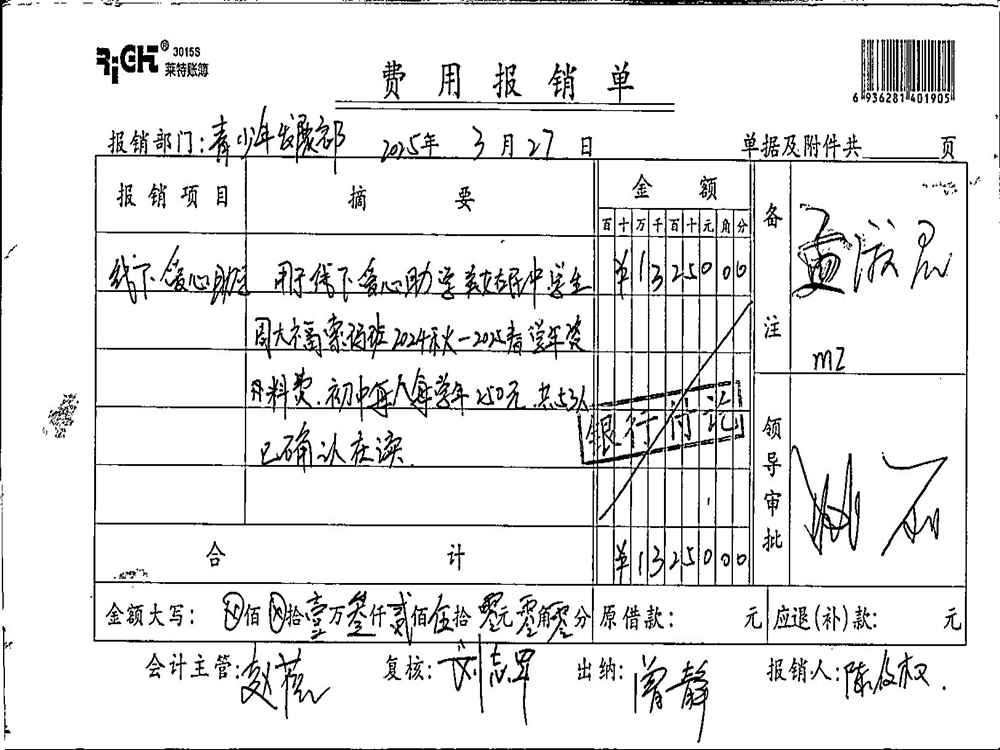 RiGHT® 3015S
莱特账簿
费用报销单
6 936281 401905
报销部门:青少年发展部 2025年3月27日 单据及附件共 页
报销项目 摘要 金额 备注
百十万千百十元角分
线下爱心助学 用于线下爱心助学 中学生 ¥1325000
周大福 班2024秋-2025春学年资
料费.初中每人每学年250元.共53人
已确认在读.
银行付讫
领导审批
合计 ¥1325000
金额大写:ⓧ佰ⓧ拾壹万叁仟贰佰伍拾零元零角零分 原借款: 元 应退(补)款: 元
会计主管: 复核: 出纳:曾静 报销人: